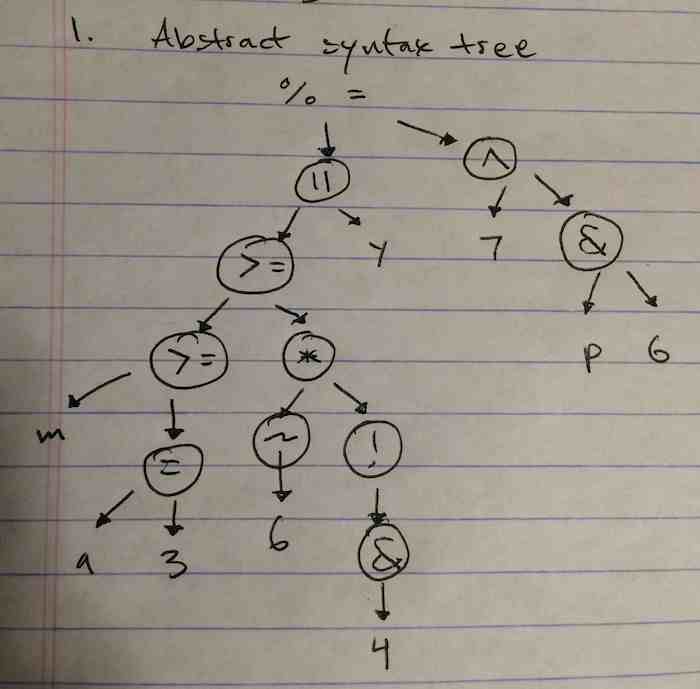 1. Abstract syntax tree
% =
||
^
>=
y
7
&
>=
*
p 6
m
=
~
!
a 3
6
&
4